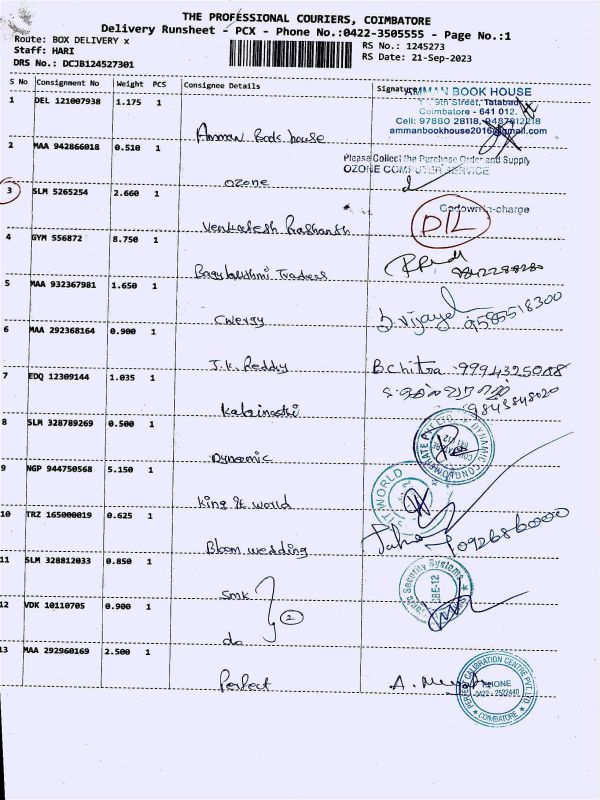 THE PROFESSIONAL COURIERS, COIMBATORE
Delivery Runsheet - PCX - Phone No.:0422-3505555 - Page No.:1
Route: BOX DELIVERY x
RS No.: 1245273
Staff: HARI
RS Date: 21-Sep-2023
DRS No.: DCJB124527301
S No Consignment No Weight PCS Consignee Details Signature
AMMAN BOOK HOUSE
9th Street, Tatabad
Coimbatore - 641 012.
Cell: 97880 28118, 9487912218
ammanbookhouse2016@gmail.com
1 DEL 121007938 1.175 1 Amman Book house
Please Collect the Purchase Order and Supply
OZONE COMPUTER SERVICE
2 MAA 942866018 0.510 1 Ozone
Godown in-charge
3 SLM 5265254 2.660 1 Venkatesh Prashanth D/L
4 GYM 556872 8.750 1 Bagylakshmi Traders
5 MAA 932367981 1.650 1 Cwergy D. Vijayal 9585518300
6 MAA 292368164 0.900 1 J.K. Reddy B.Chitra 9994325088
7 EDQ 12309144 1.035 1 9843848020
8 SLM 328789269 0.500 1 Dynamic
9 NGP 944750568 5.150 1 King of world
IT WORLD
10 TRZ 165000019 0.625 1 Bloom wedding
11 SLM 328812033 0.850 1 SMK
Security Systems
2
12 VDK 10110705 0.900 1 do
13 MAA 292960169 2.500 1 Perfect
PERFECT CALIBRATION CENTRE PVT LTD
PHONE
COIMBATORE